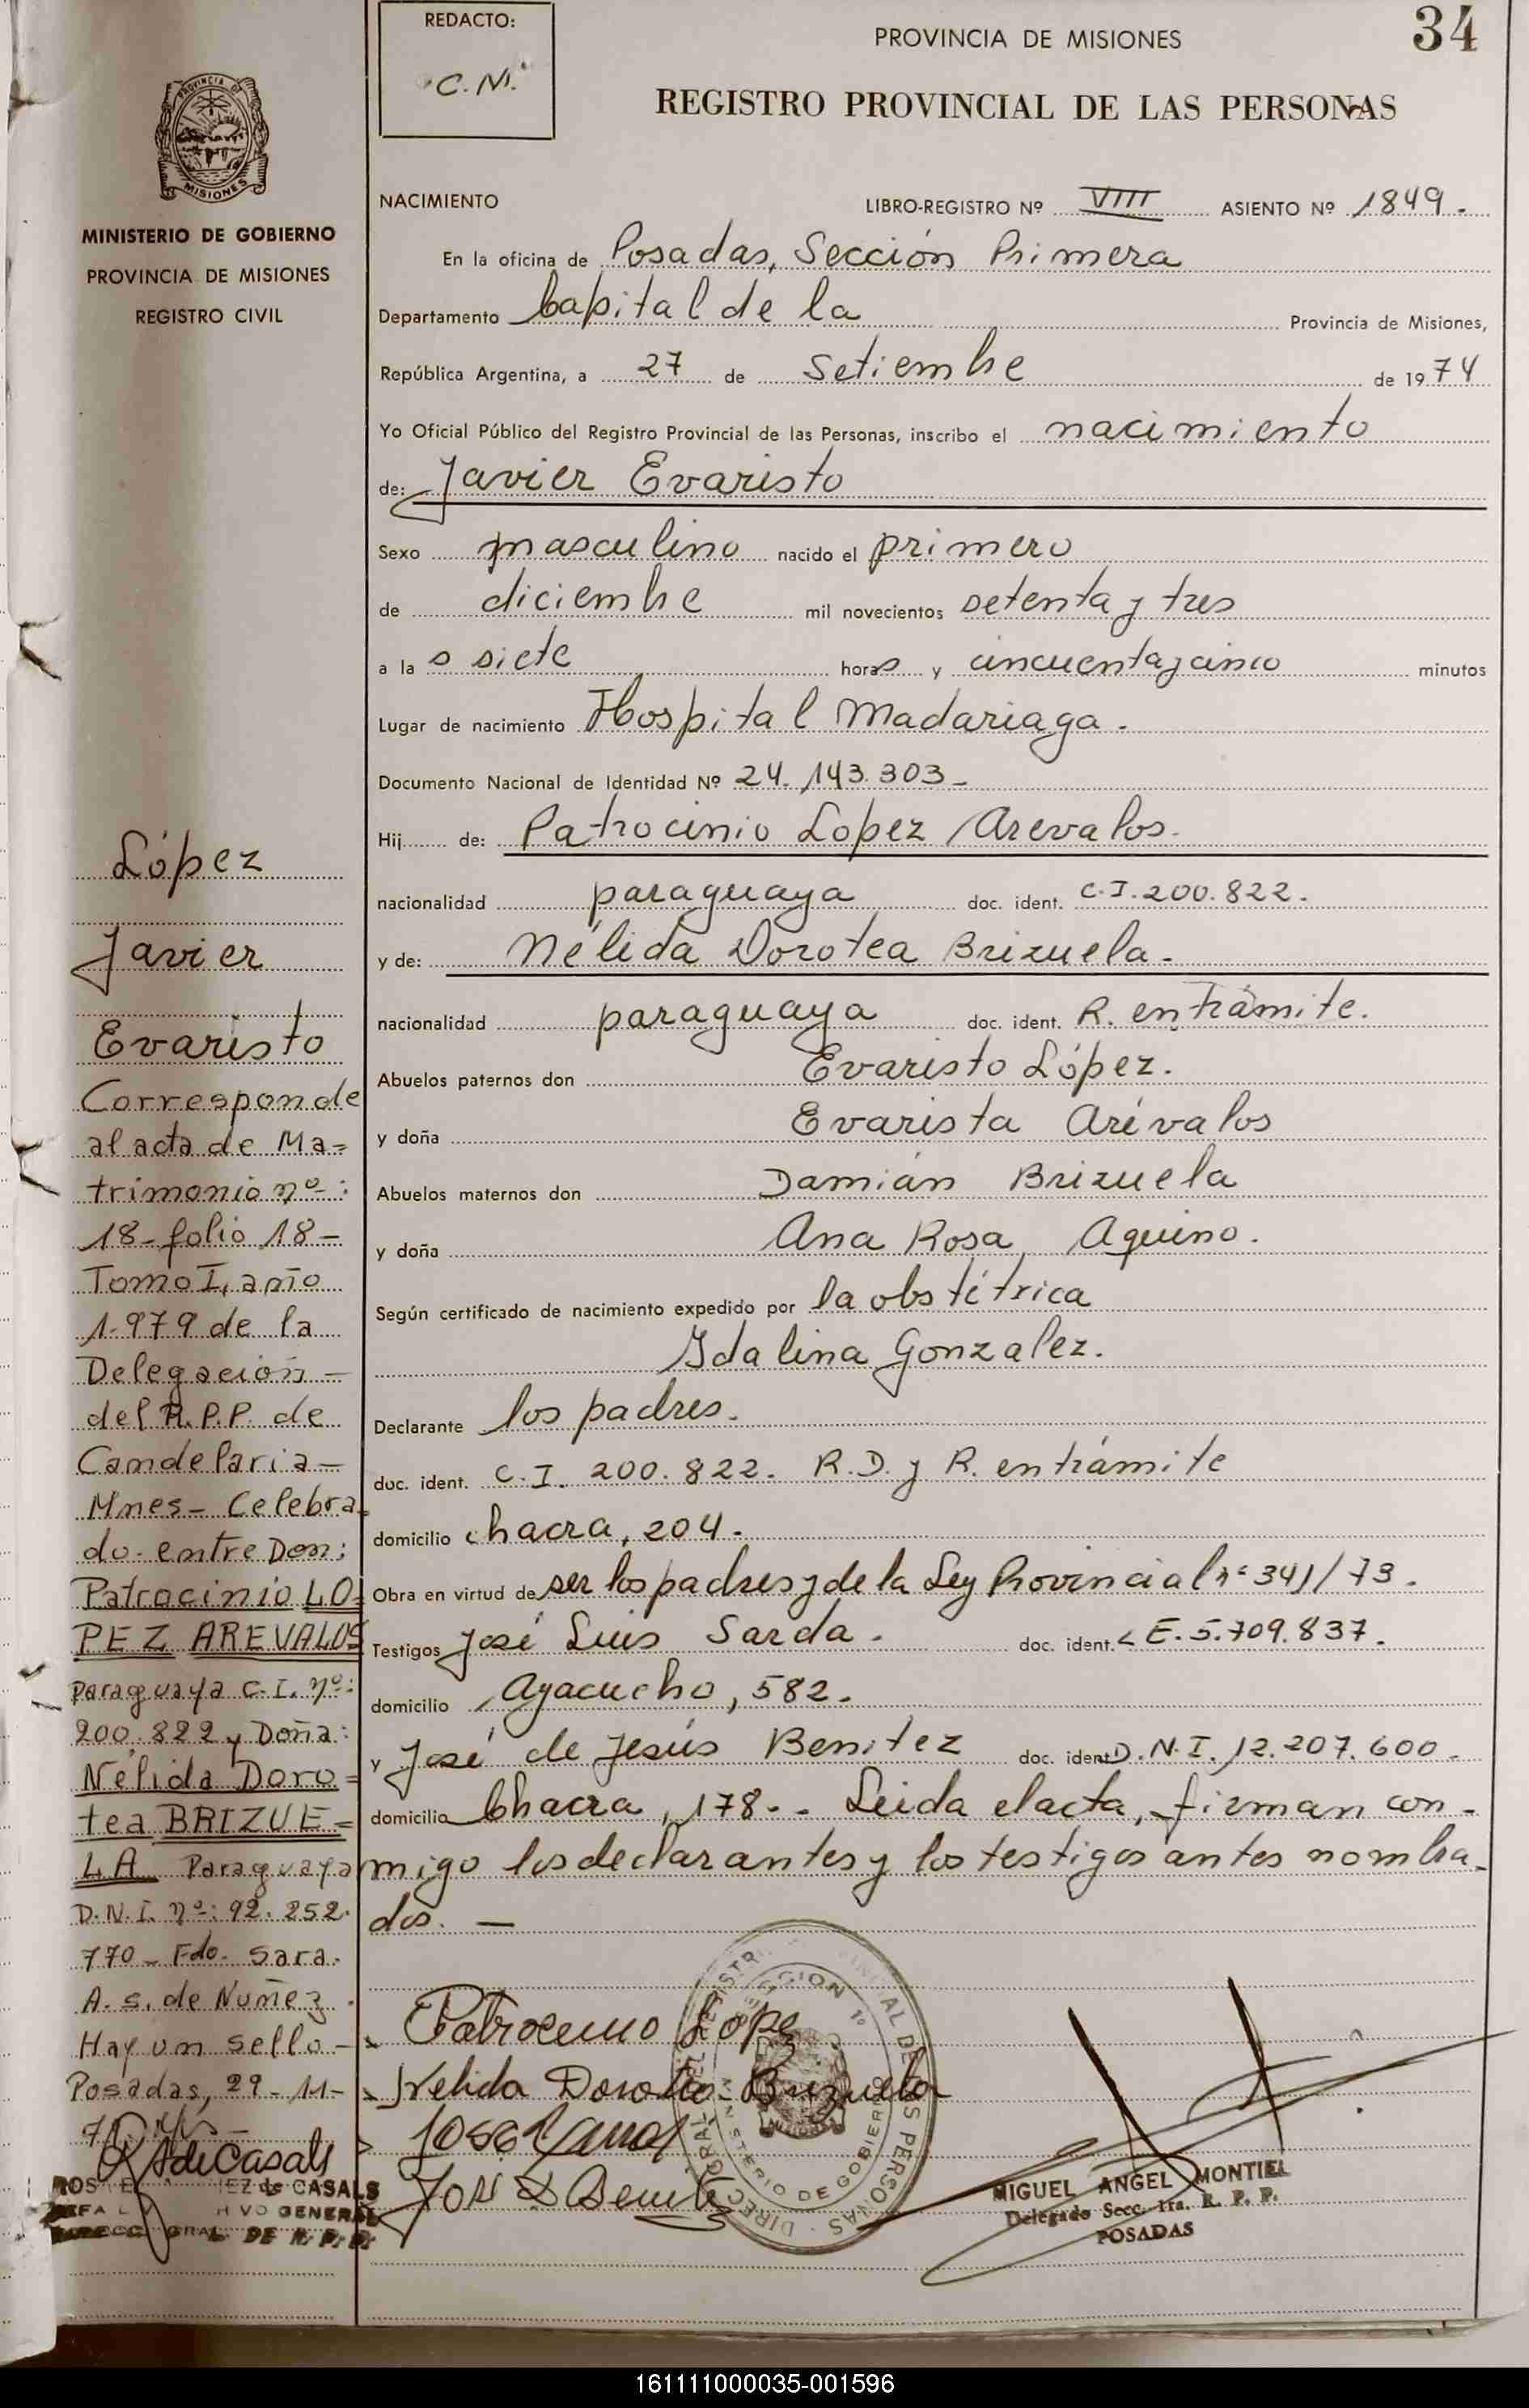 34
REDACTO:
C. M.
PROVINCIA DE MISIONES
REGISTRO PROVINCIAL DE LAS PERSONAS
PROVINCIA DE
MISIONES
MINISTERIO DE GOBIERNO
PROVINCIA DE MISIONES
REGISTRO CIVIL
NACIMIENTO LIBRO-REGISTRO Nº VIII ASIENTO Nº 1849.
En la oficina de Posadas, Sección Primera
Departamento Capital de la Provincia de Misiones,
República Argentina, a 27 de Setiembre de 1974
Yo Oficial Público del Registro Provincial de las Personas, inscribo el nacimiento
de: Javier Evaristo
Sexo masculino nacido el primero
de diciembre mil novecientos setenta y tres
a la s siete horas y cincuenta y cinco minutos
Lugar de nacimiento Hospital Madariaga.
Documento Nacional de Identidad Nº 24.143.303-
Hij de: Patrocinio Lopez Arevalos.
nacionalidad paraguaya doc. ident. C.I. 200.822.
y de: Nélida Dorotea Brizuela.
nacionalidad paraguaya doc. ident. R. en trámite.
Abuelos paternos don Evaristo López.
y doña Evarista Arévalos
Abuelos maternos don Damián Brizuela
y doña Ana Rosa Aquino.
Según certificado de nacimiento expedido por la obstétrica
Idalina Gonzalez.
Declarante los padres.
doc. ident. C.I. 200.822. R.D. y R. en trámite
domicilio chacra, 204.
Obra en virtud de ser los padres y de la Ley Provincial nº 341/73.
Testigos José Luis Sarda. doc. ident. L E. 5.709.837.
domicilio Ayacucho, 582.
y José de Jesús Benitez doc. ident. D.N.I. 12.207.600.
domicilio Chacra, 178.- Leida el acta, firman con-
migo los declarantes y los testigos antes nombra-
dos. —
López
Javier
Evaristo
Corresponde
al acta de Ma=
trimonio nº:
18- folio 18-
Tomo I, año
1.979 de la
Delegación-
del R.P.P. de
Candelaria-
Mnes- Celebra-
do entre Don:
Patrocinio LO-
PEZ AREVALOS
Paraguaya C.I. nº:
200.822 y Doña:
Nélida Doro=
tea BRIZUE=
LA Paraguaya
D.N.I. nº: 92.252.
770- Fdo. Sara.
A. S. de Nuñez.
Hay un sello-
Posadas, 29-11-
de CASALS
GENERAL
DE R.P.P.
Patrocinio Lope
Nelida Dorotea Brizuela
MINISTERIO DE GOBIERNO
MIGUEL ANGEL MONTIEL
Delegado Secc. 1ra. R. P. P.
POSADAS
161111000035-001596